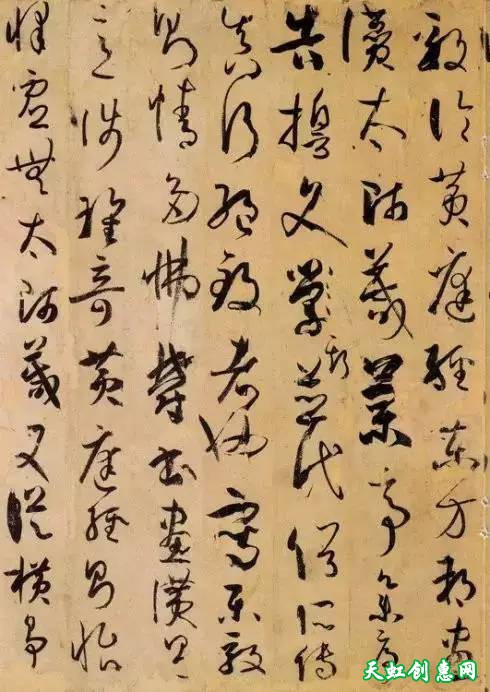 毅論黃庭經東方朔畫
讚太師箴蘭亭集序
告誓文斯並代俗所傳
真行絕致者也寫樂毅
則情多怫鬱書畫讚則
意涉瑰奇黃庭經則怡
懌虛無太師箴又從橫爭
天虹创意网